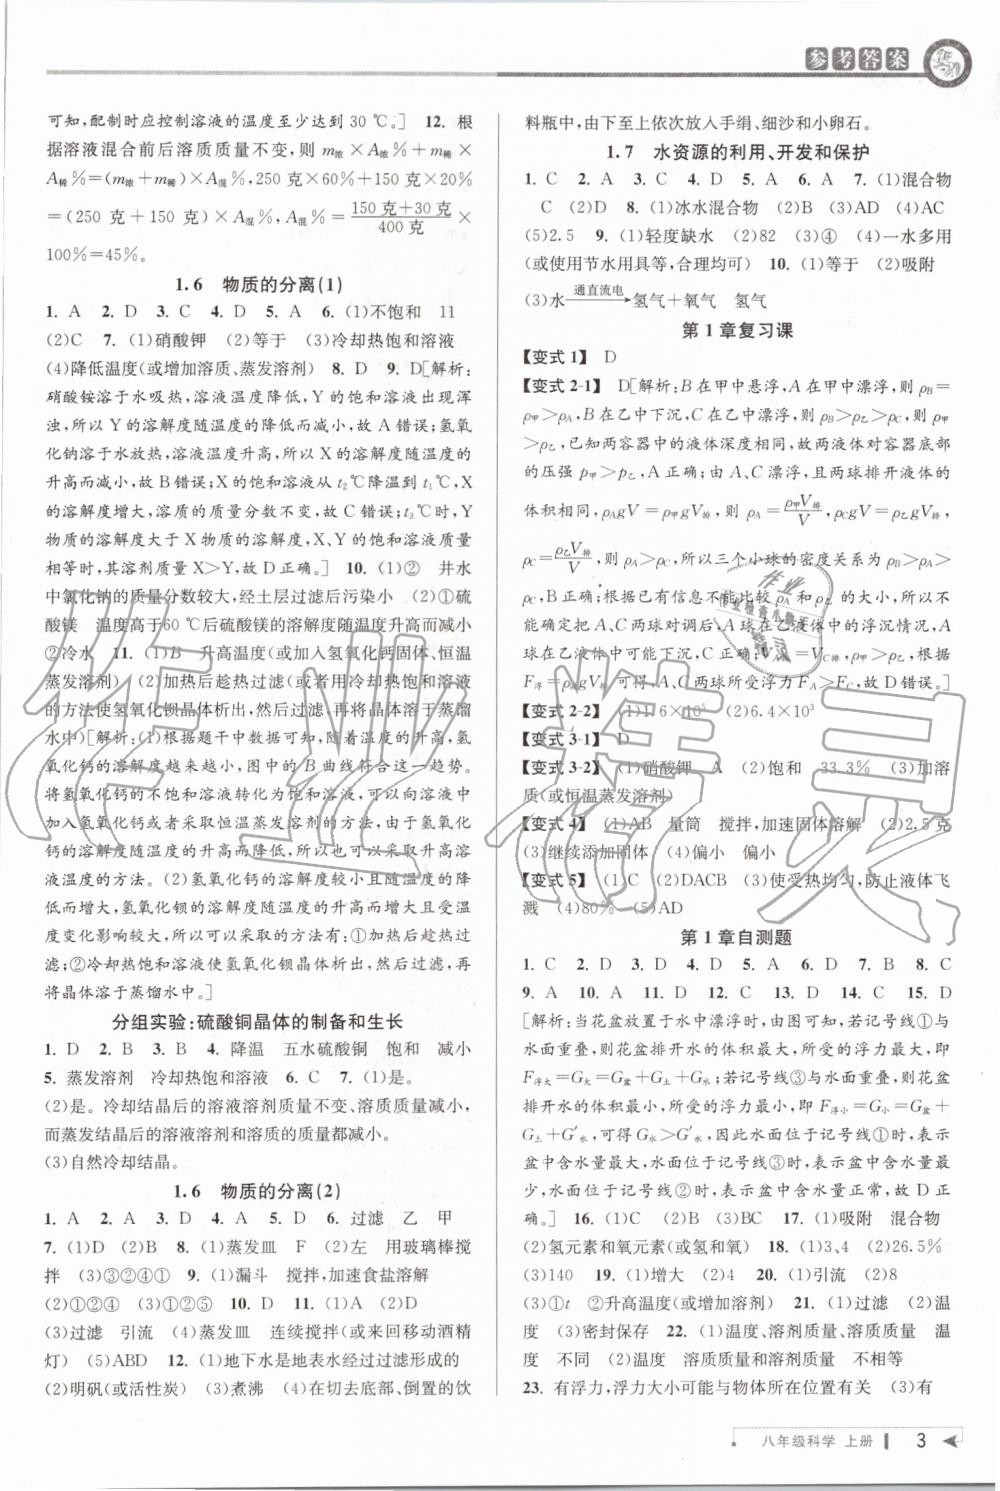 参考答案
可知,配制时应控制溶液的温度至少达到 30 ℃。] 12. 根
据溶液混合前后溶质质量不变,则 m浓×A浓%+m稀×
A稀%=(m浓+m稀)×A混%,250 克×60%+150 克×20%
=(250 克+150 克)×A混%,A混%=150 克+30 克/400 克×
100%=45%。
1.6 物质的分离(1)
1. A 2. D 3. C 4. D 5. A 6. (1)不饱和 11
(2)C 7. (1)硝酸钾 (2)等于 (3)冷却热饱和溶液
(4)降低温度(或增加溶质、蒸发溶剂) 8. D 9. D[解析:
硝酸铵溶于水吸热,溶液温度降低,Y 的饱和溶液出现浑
浊,所以 Y 的溶解度随温度的降低而减小,故 A 错误;氢氧
化钠溶于水放热,溶液温度升高,所以 X 的溶解度随温度的
升高而减小,故 B 错误;X 的饱和溶液从 t₂℃降到 t₁℃,X
的溶解度增大,溶质的质量分数不变,故 C 错误;t₃℃时,Y
物质的溶解度大于 X 物质的溶解度,X、Y 的饱和溶液质量
相等时,其溶剂质量 X>Y,故 D 正确。] 10. (1)② 井水
中氯化钠的质量分数较大,经土层过滤后污染小 (2)①硫
酸镁 温度高于60 ℃后硫酸镁的溶解度随温度升高而减小
②冷水 11. (1)B 升高温度(或加入氢氧化钙固体、恒温
蒸发溶剂) (2)加热后趁热过滤(或者用冷却热饱和溶液
的方法使氢氧化钡晶体析出,然后过滤,再将晶体溶于蒸馏
水中)[解析:(1)根据题干中数据可知,随着温度的升高,氢
氧化钙的溶解度越来越小,图中的 B 曲线符合这一趋势。
将氢氧化钙的不饱和溶液转化为饱和溶液,可以向溶液中
加入氢氧化钙或者采取恒温蒸发溶剂的方法,由于氢氧化
钙的溶解度随温度的升高而降低,所以也可以采取升高溶
液温度的方法。(2)氢氧化钙的溶解度较小且随温度的升
高而降低,氢氧化钡的溶解度随温度的升高而增大且受温
度变化影响较大,所以可以采取的方法有:①加热后趁热过
滤;②冷却热饱和溶液使氢氧化钡晶体析出,然后过滤,再
将晶体溶于蒸馏水中。]
分组实验:硫酸铜晶体的制备和生长
1. D 2. B 3. B 4. 降温 五水硫酸铜 饱和 减小
5. 蒸发溶剂 冷却热饱和溶液 6. C 7. (1)是。
(2)是。冷却结晶后的溶液溶剂质量不变、溶质质量减小,
而蒸发结晶后的溶液溶剂和溶质的质量都减小。
(3)自然冷却结晶。
1.6 物质的分离(2)
1. A 2. A 3. D 4. A 5. D 6. 过滤 乙 甲
7. (1)D (2)B 8. (1)蒸发皿 F (2)左 用玻璃棒搅
拌 (3)③②④① 9. (1)漏斗 搅拌,加速食盐溶解
(2)①②④ (3)①②⑤ 10. D 11. (1)A (2)D
(3)过滤 引流 (4)蒸发皿 连续搅拌(或来回移动酒精
灯) (5)ABD 12. (1)地下水是地表水经过过滤形成的
(2)明矾(或活性炭) (3)煮沸 (4)在切去底部、倒置的饮
料瓶中,由下至上依次放入手绢、细沙和小卵石。
1.7 水资源的利用、开发和保护
1. C 2. A 3. C 4. D 5. A 6. A 7. (1)混合物
C (2)D 8. (1)冰水混合物 (2)B (3)AD (4)AC
(5)2.5 9. (1)轻度缺水 (2)82 (3)④ (4)一水多用
(或使用节水用具等,合理均可) 10. (1)等于 (2)吸附
(3)水 通直流电→ 氢气+氧气 氢气
第 1 章复习课
【变式 1】 D
【变式 2-1】 D[解析:B 在甲中悬浮,A 在甲中漂浮,则 ρB=
ρ甲>ρA,B 在乙中下沉,C 在乙中漂浮,则 ρB>ρ乙>ρC,则 ρ甲
>ρ乙,已知两容器中的液体深度相同,故两液体对容器底部
的压强 p甲>p乙,A 正确;由 A、C 漂浮,且两球排开液体的
体积相同,ρAgV=ρ甲gV排,则 ρA=ρ甲V排/V,ρCgV=ρ乙gV排,
ρC=ρ乙V排/V,则 ρA>ρC,所以三个小球的密度关系为 ρB>ρA>
ρC,B 正确;根据已有信息不能比较 ρA 和 ρ乙 的大小,所以不
能确定把 A、C 两球对调后,A 球在乙液体中的浮沉情况,A
球在乙液体中可能下沉,C 正确;VA排=VC排,ρ甲>ρ乙,根据
F浮=ρ液gV排 可得,A、C 两球所受浮力 FA>FC,故 D 错误。]
【变式 2-2】 (1)1.6×10⁵ (2)6.4×10³
【变式 3-1】 D
【变式 3-2】 (1)硝酸钾 A (2)饱和 33.3% (3)加溶
质(或恒温蒸发溶剂)
【变式 4】 (1)AB 量筒 搅拌,加速固体溶解 (2)2.5 克
(3)继续添加固体 (4)偏小 偏小
【变式 5】 (1)C (2)DACB (3)使受热均匀,防止液体飞
溅 (4)80% (5)AD
第 1 章自测题
1. C 2. D 3. D 4. D 5. A 6. D 7. B 8. C
9. A 10. A 11. D 12. C 13. D 14. C 15. D
[解析:当花盆放置于水中漂浮时,由图可知,若记号线①与
水面重叠,则花盆排开水的体积最大,所受的浮力最大,即
F浮大=G大=G盆+G土+G水;若记号线③与水面重叠,则花盆
排开水的体积最小,所受的浮力最小,即 F浮小=G小=G盆+
G土+G′水,可得 G水>G′水,因此水面位于记号线①时,表示
盆中含水量最大,水面位于记号线③时,表示盆中含水量最
小,水面位于记号线②时,表示盆中含水量正常,故 D 正
确。] 16. (1)C (2)B (3)BC 17. (1)吸附 混合物
(2)氢元素和氧元素(或氢和氧) 18. (1)3、4 (2)26.5%
(3)140 19. (1)增大 (2)4 20. (1)引流 (2)8
(3)①t ②升高温度(或增加溶剂) 21. (1)过滤 (2)温
度 (3)密封保存 22. (1)温度、溶剂质量、溶质质量 温
度 不同 (2)温度 溶质质量和溶剂质量 不相等
23. 有浮力,浮力大小可能与物体所在位置有关 (3)有
八年级科学 上册 3
作业精灵